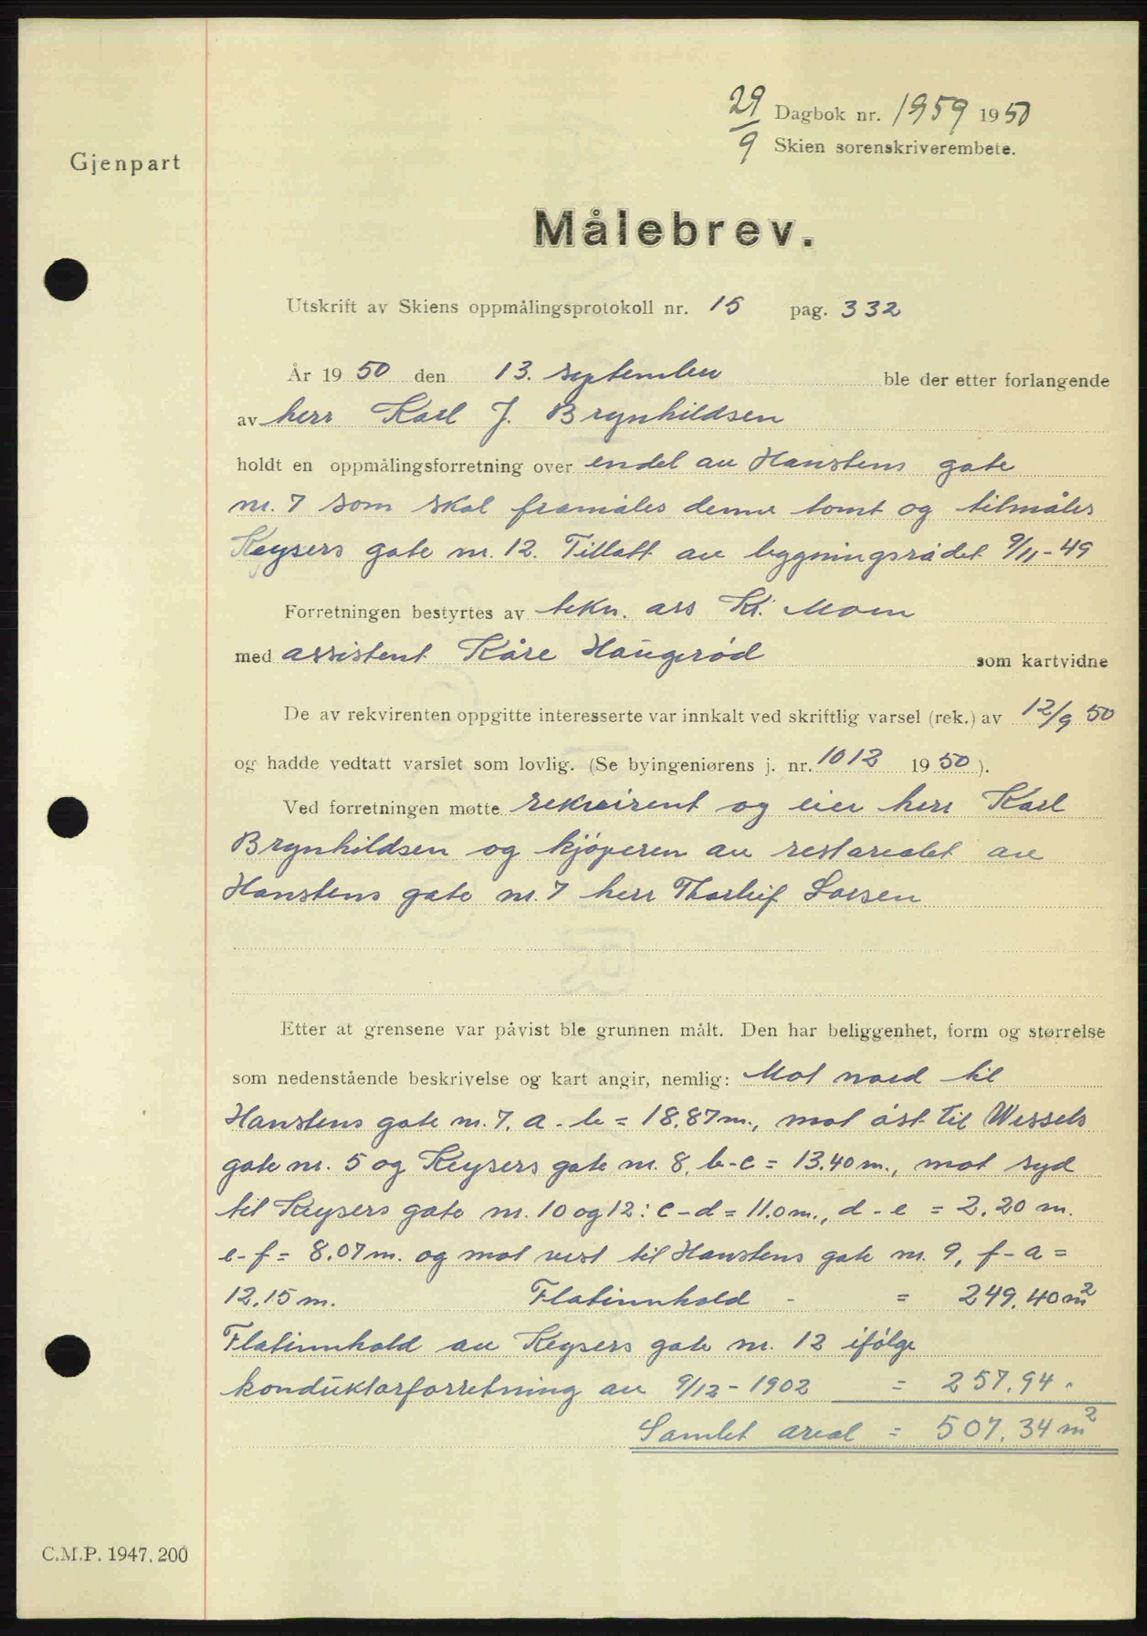 29/9 Dagbok nr. 1959 1950
Skien sorenskriverembete.
Gjenpart
Målebrev.
Utskrift av Skiens oppmålingsprotokoll nr. 15 pag. 332
År 1950 den 13. september ble der etter forlangende
av herr Karl J. Brynhildsen
holdt en oppmålingsforretning over endel av Hanstens gate
nr. 7 som skal framåles denne tomt og tilmåles
Keysers gate nr. 12. Tillatt av bygningsrådet 9/11-49
Forretningen bestyrtes av tekn. ass Kr. Moen
med assistent Kåre Haugerød som kartvidne
De av rekvirenten oppgitte interesserte var innkalt ved skriftlig varsel (rek.) av 12/9 50
og hadde vedtatt varslet som lovlig. (Se byingeniørens j. nr. 1012 1950).
Ved forretningen møtte rekvirent og eier herr Karl
Brynhildsen og kjøperen av restarealet av
Hanstens gate nr. 7 herr Thorleif Larsen
Etter at grensene var påvist ble grunnen målt. Den har beliggenhet, form og størrelse
som nedenstående beskrivelse og kart angir, nemlig: Mot nord til
Hanstens gate nr. 7. a - b = 18.87 m., mot øst til Wessels
gate nr. 5 og Keysers gate nr. 8. b-c = 13.40 m., mot syd
til Keysers gate nr. 10 og 12: c-d = 11.0 m., d - e = 2.20 m.
e-f = 8.07 m. og mot vest til Hanstens gate nr. 9, f-a =
12.15 m. Flatinnhold - = 249.40 m2
Flatinnhold av Keysers gate nr. 12 ifølge
konduktørforretning av 9/12-1902 = 257.94 "
Samlet areal = 507.34 m2
C.M.P. 1947. 200